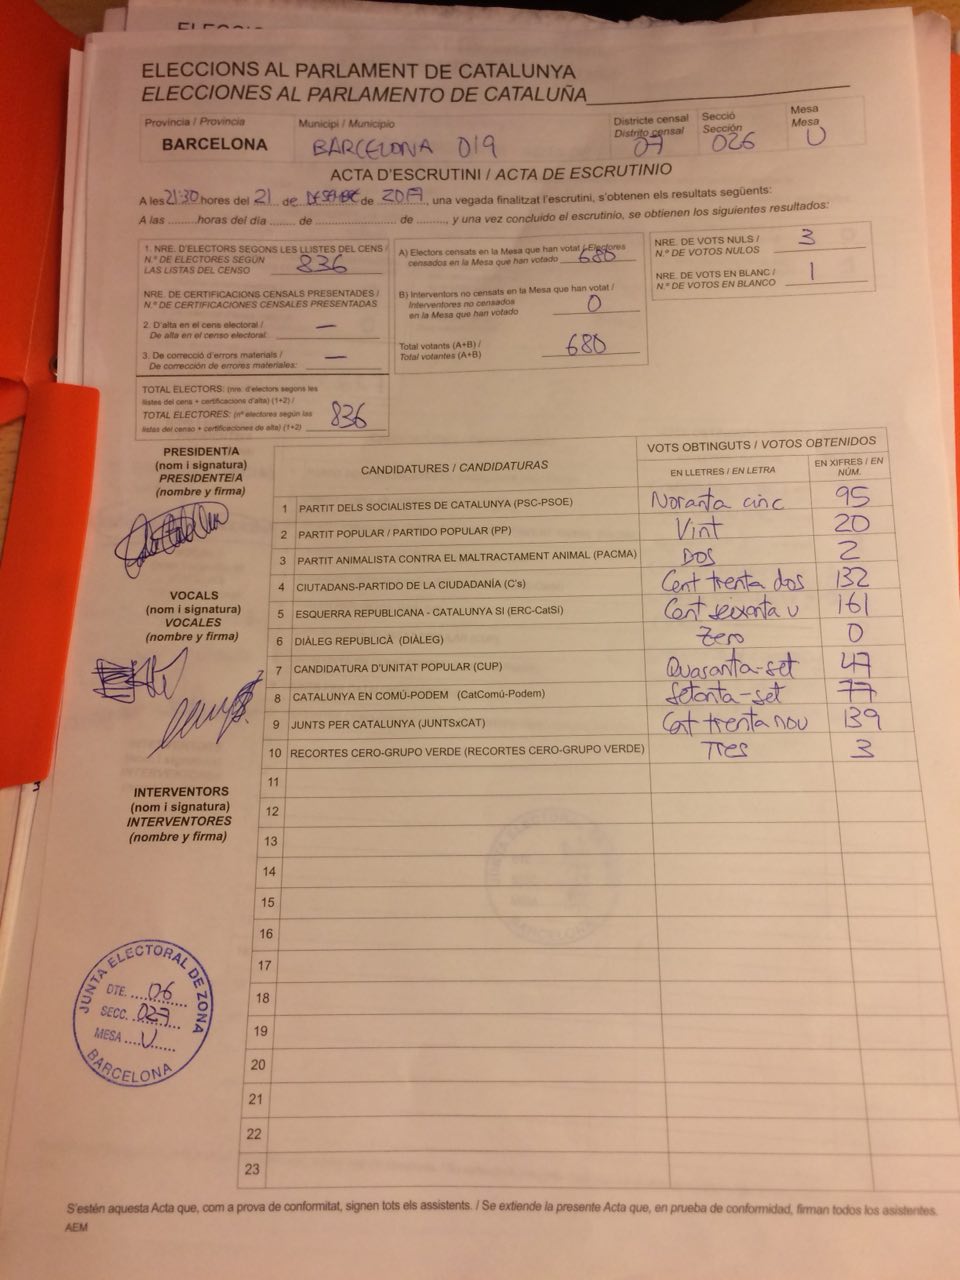 ELECCIONS AL PARLAMENT DE CATALUNYA
ELECCIONES AL PARLAMENTO DE CATALUÑA
Provincia / Provincia
BARCELONA
Municipi / Municipio
BARCELONA 019
Districte censal
Distrito censal
07
Secció
Sección
026
Mesa
Mesa
U
ACTA D'ESCRUTINI / ACTA DE ESCRUTINIO
A les 21:30 hores del 21 de DESEMBRE de 2017, una vegada finalitzat l'escrutini, s'obtenen els resultats següents:
A las ........ horas del día ...... de .................... de ........, y una vez concluido el escrutinio, se obtienen los siguientes resultados:
1. NRE. D'ELECTORS SEGONS LES LLISTES DEL CENS /
N.º DE ELECTORES SEGÚN
LAS LISTAS DEL CENSO 836
NRE. DE CERTIFICACIONS CENSALS PRESENTADES /
N.º DE CERTIFICACIONES CENSALES PRESENTADAS
2. D'alta en el cens electoral /
De alta en el censo electoral: —
3. De correcció d'errors materials /
De corrección de errores materiales: —
TOTAL ELECTORS: (nre. d'electors segons les
llistes del cens + certificacions d'alta) (1+2) /
TOTAL ELECTORES: (nº electores según las
listas del censo + certificaciones de alta) (1+2) 836
A) Electors censats en la Mesa que han votat / Electores
censados en la Mesa que han votado 680
B) Interventors no censats en la Mesa que han votat /
Interventores no censados
en la Mesa que han votado 0
Total votants (A+B) /
Total votantes (A+B) 680
NRE. DE VOTS NULS /
N.º DE VOTOS NULOS 3
NRE. DE VOTS EN BLANC /
N.º DE VOTOS EN BLANCO 1
PRESIDENT/A
(nom i signatura)
PRESIDENTE/A
(nombre y firma)
VOCALS
(nom i signatura)
VOCALES
(nombre y firma)
INTERVENTORS
(nom i signatura)
INTERVENTORES
(nombre y firma)
CANDIDATURES / CANDIDATURAS
VOTS OBTINGUTS / VOTOS OBTENIDOS
EN LLETRES / EN LETRA
EN XIFRES / EN NÚM.
1 PARTIT DELS SOCIALISTES DE CATALUNYA (PSC-PSOE) Noranta cinc 95
2 PARTIT POPULAR / PARTIDO POPULAR (PP) Vint 20
3 PARTIT ANIMALISTA CONTRA EL MALTRACTAMENT ANIMAL (PACMA) Dos 2
4 CIUTADANS-PARTIDO DE LA CIUDADANÍA (C's) Cent trenta dos 132
5 ESQUERRA REPUBLICANA - CATALUNYA SI (ERC-CatSí) Cent seixanta u 161
6 DIÀLEG REPUBLICÀ (DIÀLEG) Zero 0
7 CANDIDATURA D'UNITAT POPULAR (CUP) Quaranta-set 47
8 CATALUNYA EN COMÚ-PODEM (CatComú-Podem) Setanta-set 77
9 JUNTS PER CATALUNYA (JUNTSxCAT) Cent trenta nou 139
10 RECORTES CERO-GRUPO VERDE (RECORTES CERO-GRUPO VERDE) Tres 3
11
12
13
14
15
16
17
18
19
20
21
22
23
JUNTA ELECTORAL DE ZONA
DTE. 06
SECC. 027
MESA U
BARCELONA
S'estén aquesta Acta que, com a prova de conformitat, signen tots els assistents. / Se extiende la presente Acta que, en prueba de conformidad, firman todos los asistentes.
AEM